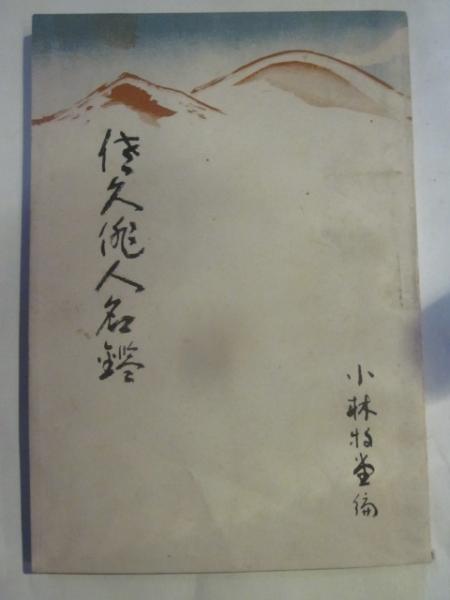 佐久俳人名鑑
小林牧堂編